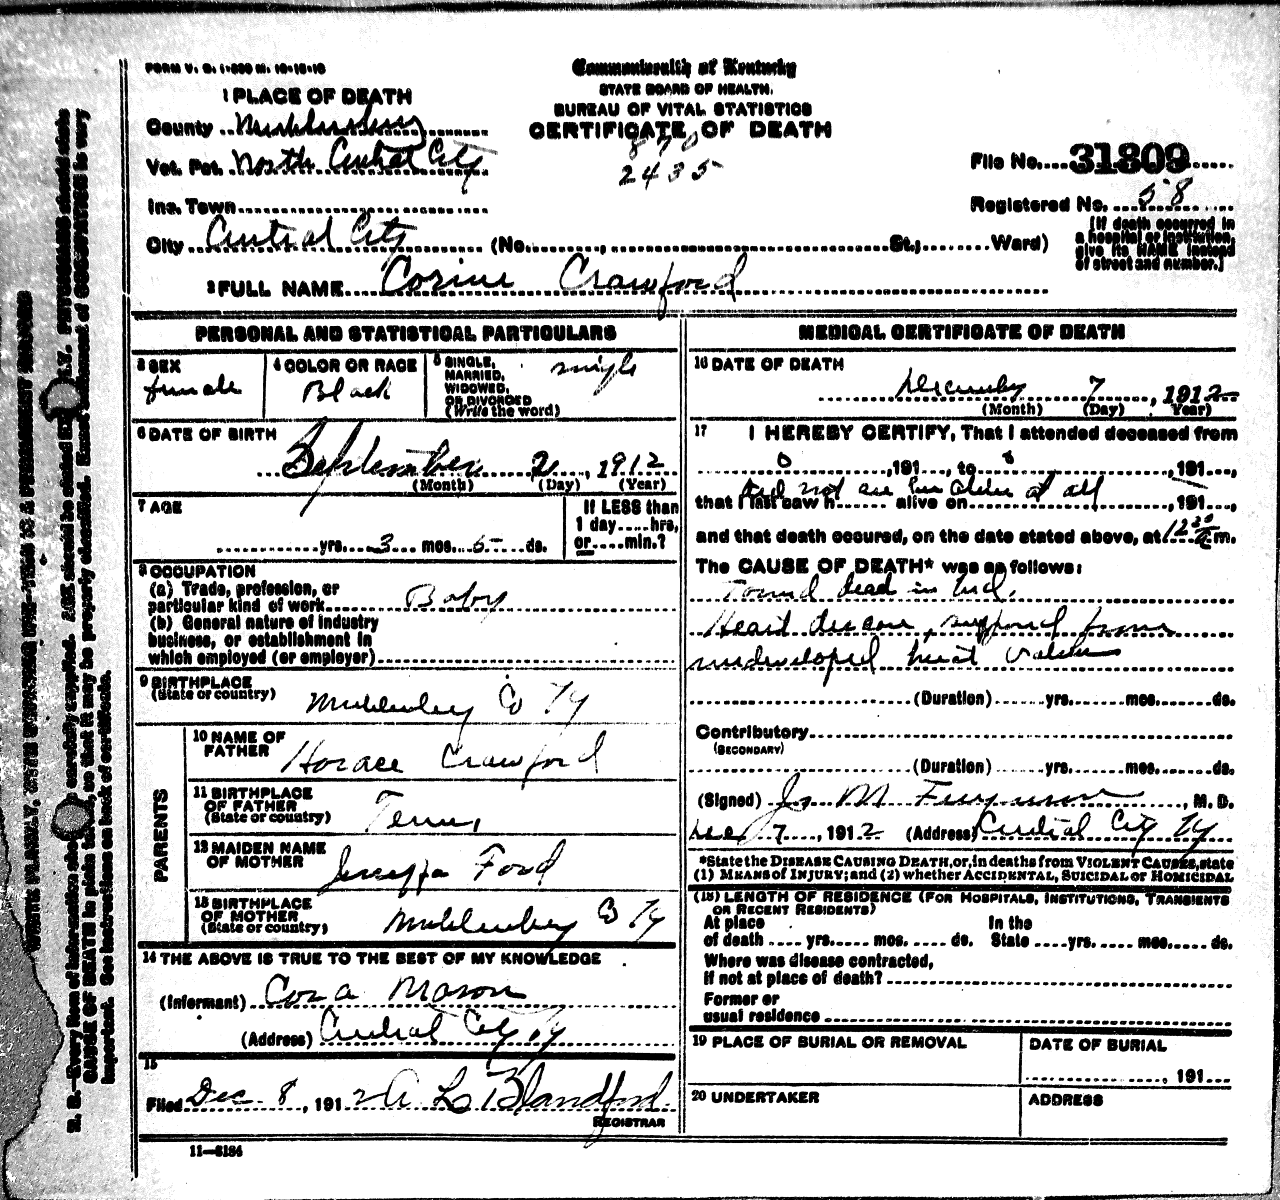 FORM V. S. 1-
Commonwealth of Kentucky
STATE BOARD OF HEALTH.
BUREAU OF VITAL STATISTICS
CERTIFICATE OF DEATH
870
2435
1 PLACE OF DEATH
County Muhlenberg
Vot. Pct. North Central City
Inc. Town
City Central City (No. , St.; Ward)
File No. 31809
Registered No. 58
[If death occurred in
a hospital or institution,
give its NAME instead
of street and number.]
2 FULL NAME Corine Crawford
PERSONAL AND STATISTICAL PARTICULARS
3 SEX
female
4 COLOR OR RACE
Black
5 SINGLE,
MARRIED,
WIDOWED,
OR DIVORCED
(Write the word)
single
6 DATE OF BIRTH
September 2, 1912
(Month) (Day) (Year)
7 AGE
yrs. 3 mos. 5 ds.
If LESS than
1 day, hrs,
or min.?
8 OCCUPATION
(a) Trade, profession, or
particular kind of work Baby
(b) General nature of industry
business, or establishment in
which employed (or employer)
9 BIRTHPLACE
(State or country)
Muhlenberg Co Ky
PARENTS
10 NAME OF
FATHER
Horace Crawford
11 BIRTHPLACE
OF FATHER
(State or country)
Tenn.
12 MAIDEN NAME
OF MOTHER
Ford
13 BIRTHPLACE
OF MOTHER
(State or country)
Muhlenberg Co Ky
14 THE ABOVE IS TRUE TO THE BEST OF MY KNOWLEDGE
(Informant) Cora Mason
(Address) Central City Ky
15
Filed Dec 8, 1912 A L Blandford
REGISTRAR
11—5184
MEDICAL CERTIFICATE OF DEATH
16 DATE OF DEATH
December 7, 1912
(Month) (Day) (Year)
17 I HEREBY CERTIFY, That I attended deceased from
0, 191 , to 0, 191 ,
did not see her alive at all
that I last saw h alive on , 191 ,
and that death occured, on the date stated above, at 12 m.
The CAUSE OF DEATH* was as follows:
Found dead in bed.
Heart disease, supposed from
undeveloped heart valves
(Duration) yrs. mos. ds.
Contributory
(SECONDARY)
(Duration) yrs. mos. ds.
(Signed) M Ferguson, M. D.
Dec 7, 1912 (Address) Central City Ky
*State the DISEASE CAUSING DEATH, or, in deaths from VIOLENT CAUSES, state
(1) MEANS OF INJURY; and (2) whether ACCIDENTAL, SUICIDAL or HOMICIDAL
(18) LENGTH OF RESIDENCE (FOR HOSPITALS, INSTITUTIONS, TRANSIENTS
OR RECENT RESIDENTS)
At place In the
of death yrs. mos. ds. State yrs. mos. ds.
Where was disease contracted,
if not at place of death?
Former or
usual residence
19 PLACE OF BURIAL OR REMOVAL
DATE OF BURIAL
, 191
20 UNDERTAKER
ADDRESS
WRITE PLAINLY, WITH UNFADING INK—THIS IS A PERMANENT RECORD
N. B.—Every item of information should be carefully supplied. AGE should be stated EXACTLY. PHYSICIANS should state
CAUSE OF DEATH in plain terms, so that it may be properly classified. Exact statement of OCCUPATION is very
important. See instructions on back of certificate.